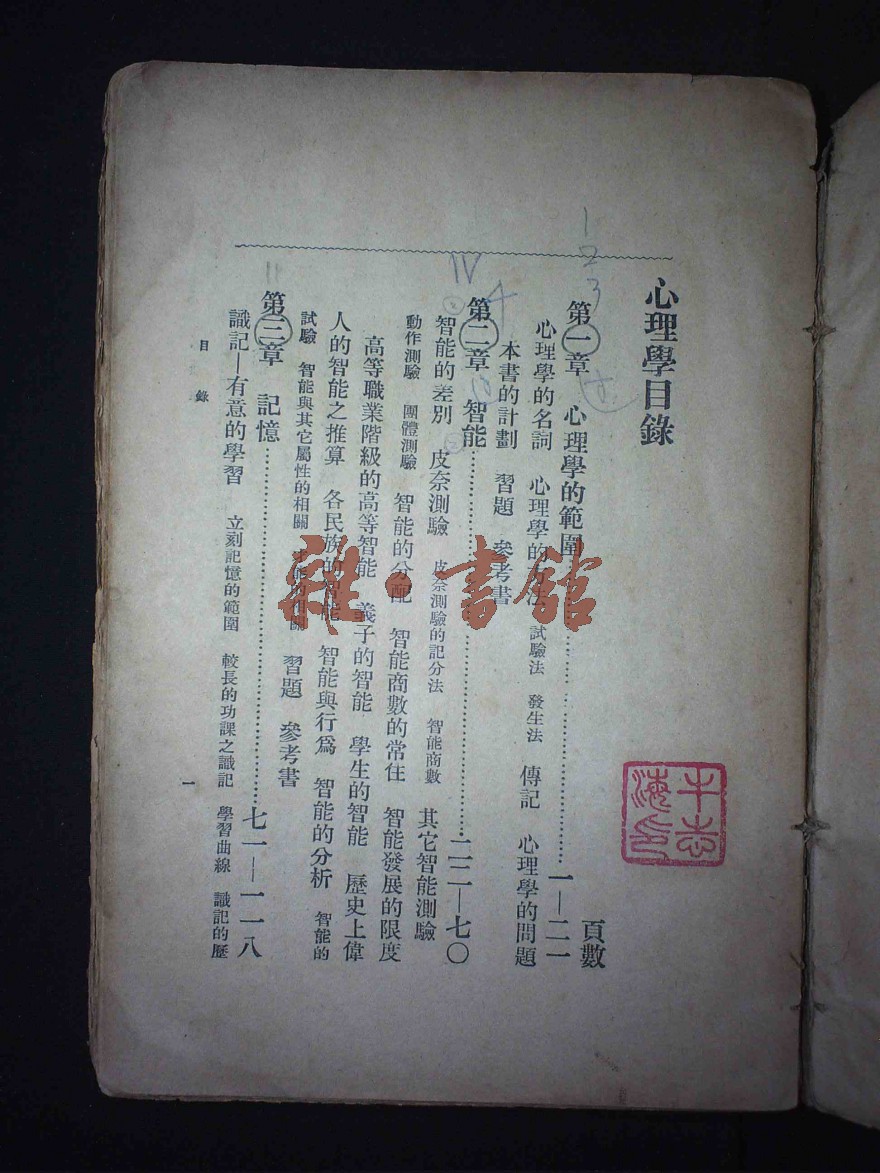 心理學目錄
頁數
第一章 心理學的範圍……一—二一
心理學的名詞 心理學的方法 試驗法 發生法 傳記 心理學的問題
本書的計劃 習題 參考書
第二章 智能……二二—七〇
智能的差別 皮奈測驗 皮奈測驗的記分法 智能商數 其它智能測驗
動作測驗 團體測驗 智能的分配 智能商數的常住 智能發展的限度
高等職業階級的高等智能 義子的智能 學生的智能 歷史上偉
人的智能之推算 各民族的智能 智能與行爲 智能的分析 智能的
試驗 智能與其它屬性的相關 習題 參考書
第三章 記憶……七一—一一八
識記—有意的學習 立刻記憶的範圍 較長的功課之識記 學習曲線 識記的歷
目錄
一
1
2
3
IV
4
雜·書館